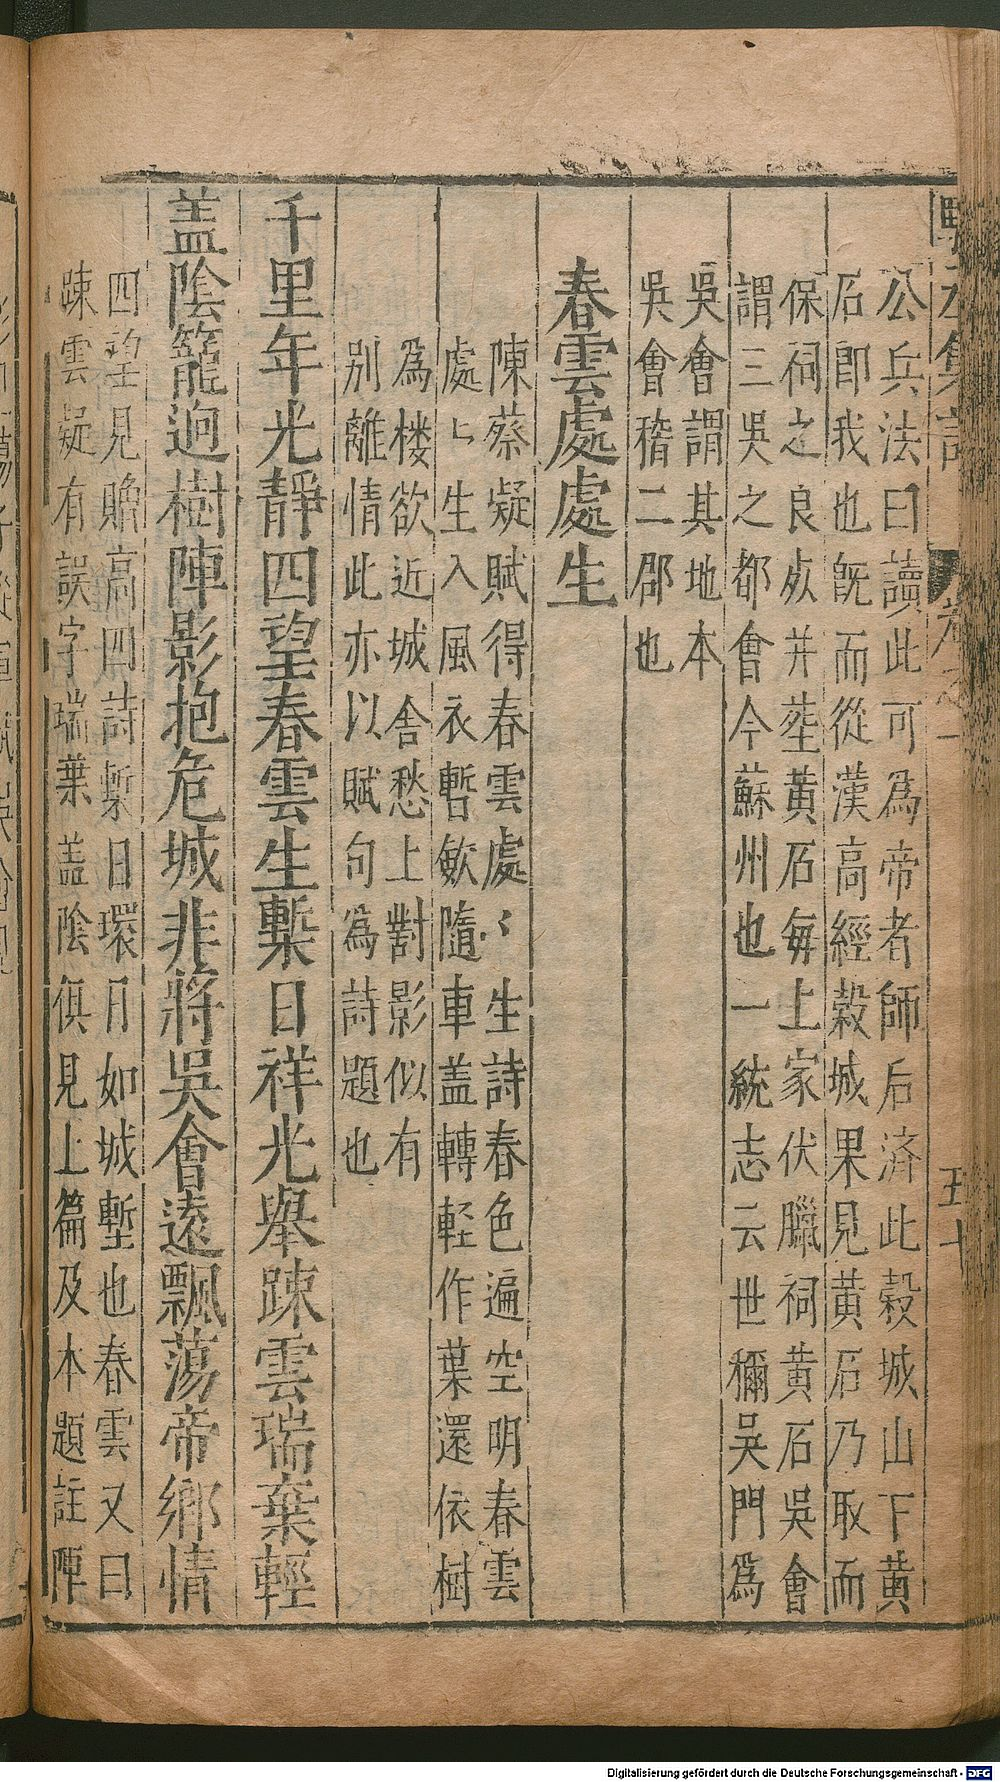 公兵法曰讀此可為帝者師后済此穀城山下黄
石即我也旣而從漢高經穀城果見黄石乃取而
保祠之良歿并塟黄石每上冢伏臘祠黄石吳會
謂三吳之都會今蘇州也一統志云世稱吳門為
吳會謂其地本
吳會稽二郡也
春雲處處生
陳蔡凝賦得春雲處〻生詩春色遍空明春雲
處〻生入風衣暫歛隨車盖轉軽作葉還依樹
為楼欲近城含愁上對影似有
别離情此亦以賦句為詩題也
千里年光靜四望春雲生槧日祥光舉踈雲瑞葉輕
盖陰籠迥樹陣影抱危城非將吳會遠飄蕩帝鄉情
四望見贍高四詩槧日環日如城塹也春雲又曰
踈雲疑有誤字瑞葉盖陰俱見上篇及本題註陣
Digitalisierung gefördert durch die Deutsche Forschungsgemeinschaft - DFG